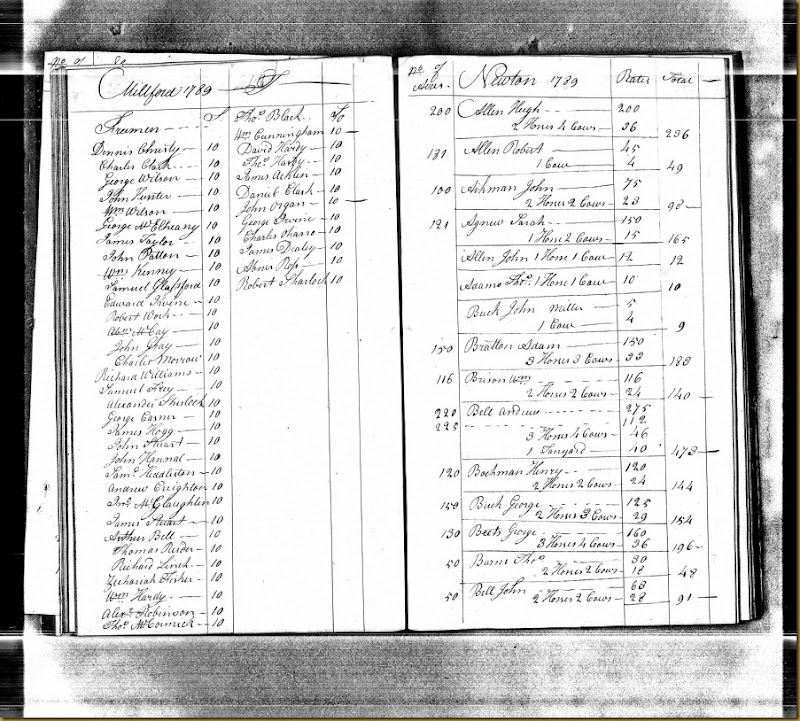 no of
Millford 1789
S
Freemen
Dinnis Christy 10
Charles Clark 10
George Wilson 10
John Hunter 10
Wm Wilson 10
George McElheany 10
James Taylor 10
John Patton 10
Wm Kinney 10
Samuel Glassford 10
Edward Irvine 10
Robert Work 10
Alexr McCay 10
John Gray 10
Charles Morrow 10
Richard Williams 10
Samuel Frey 10
Alexander Sherlock 10
George Casner 10
James Hogg 10
John Stuart 10
John Hannal 10
Saml Hiddleston 10
Andrew Creighton 10
Jno McGlaughlin 10
James Stuart 10
Arthur Bell 10
Thomas Reider 10
Richard Linch 10
Zechariah Fisher 10
Wm Hardy 10
Alexr Robinson 10
Thos McCormick 10
Thos Black 10
Wm Cunningham 10
David Hardy 10
Thos Hardy 10
James Acklin 10
Daniel Clark 10
John Organ 10
George Irvine 10
Charles Oharro 10
James Dealey 10
Abner Ross 10
Robert Sharlock 10
no of Acres Newton 1789 Rates Total
200 Allen Hugh 200
2 Horses 4 Cows 36 236
131 Allen Robert 45
1 Cow 4 49
100 Ashman John 75
2 Horses 2 Cows 23 98
121 Agnew Sarah 150
1 Horse 2 Cows 15 165
Allen John 1 Horse 1 Cow 12 12
Adams Thos 1 Horse 1 Cow 10 10
Buck John Miller 5
1 Cow 4 9
150 Bratton Adam 150
3 Horses 3 Cows 33 183
116 Brison Wm 116
2 Horses 2 Cows 24 140
220 Bell Andrew 275
225 112
3 Horses 4 Cows 46
1 Tanyard 40 473
120 Bochman Henry 120
2 Horses 2 Cows 24 144
150 Buck George 125
2 Horses 3 Cows 29 154
130 Beets George 160
3 Horses 4 Cows 36 196
50 Barns Thos 30
2 Horses 2 Cows 18 48
50 Bell John 63
2 Horses 2 Cows 28 91